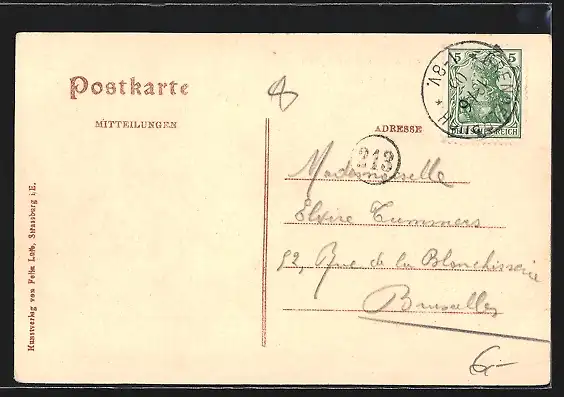 Postkarte
MITTEILUNGEN
ADRESSE
5 5
DEUTSCHES REICH
213
Mademoiselle
Elvire Tummers
92, Rue de la Blanchisserie
Bruxelles
6-
Kunstverlag von Felix Luib, Strassburg i.E.